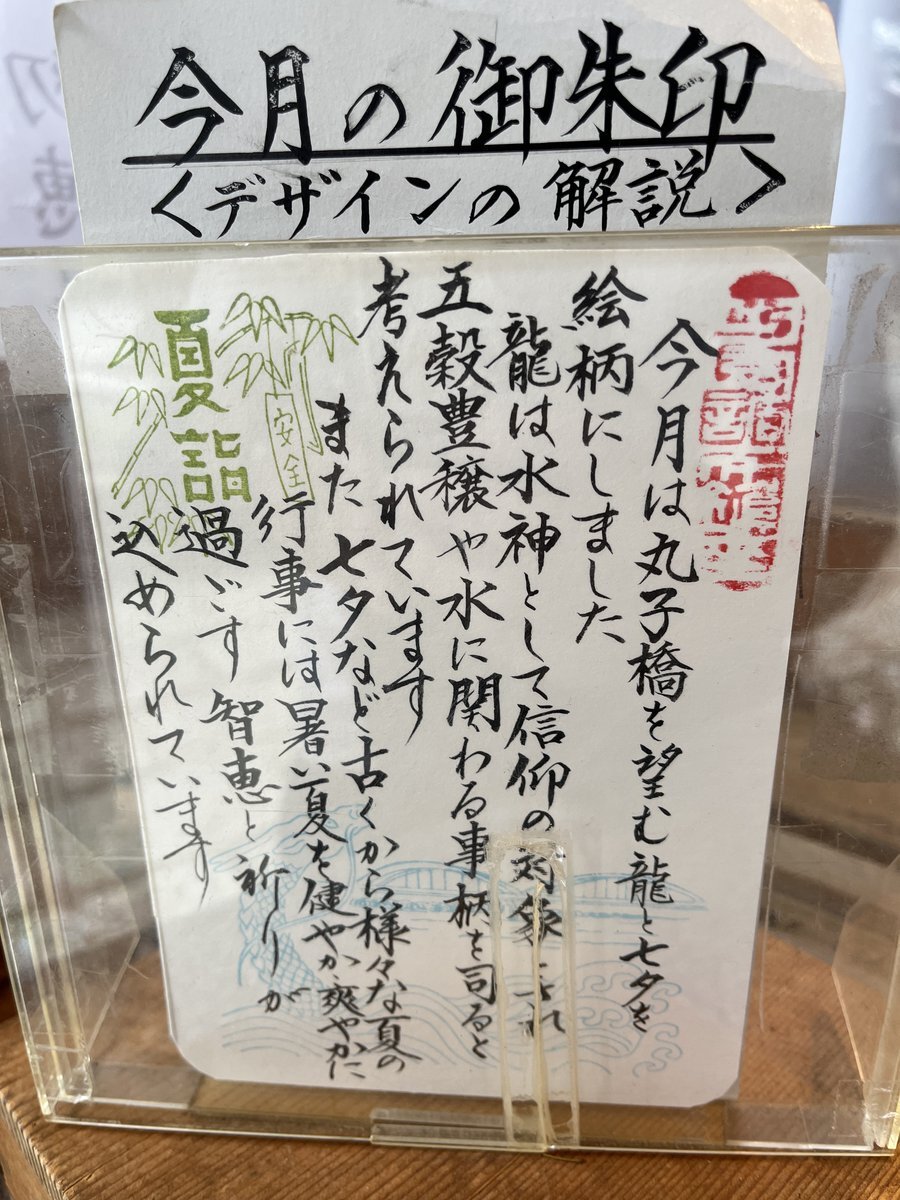 今月の御朱印
<デザインの解説>
今月は丸子橋を望む龍と七夕を
絵柄にしました
龍は水神として信仰の対象とされ
五穀豊穣や水に関わる事柄を司ると
考えられています
また七夕など古くから様々な夏の
行事には暑い夏を健やか爽やかに
過ごす智恵と祈りが
込められています
安全
夏詣